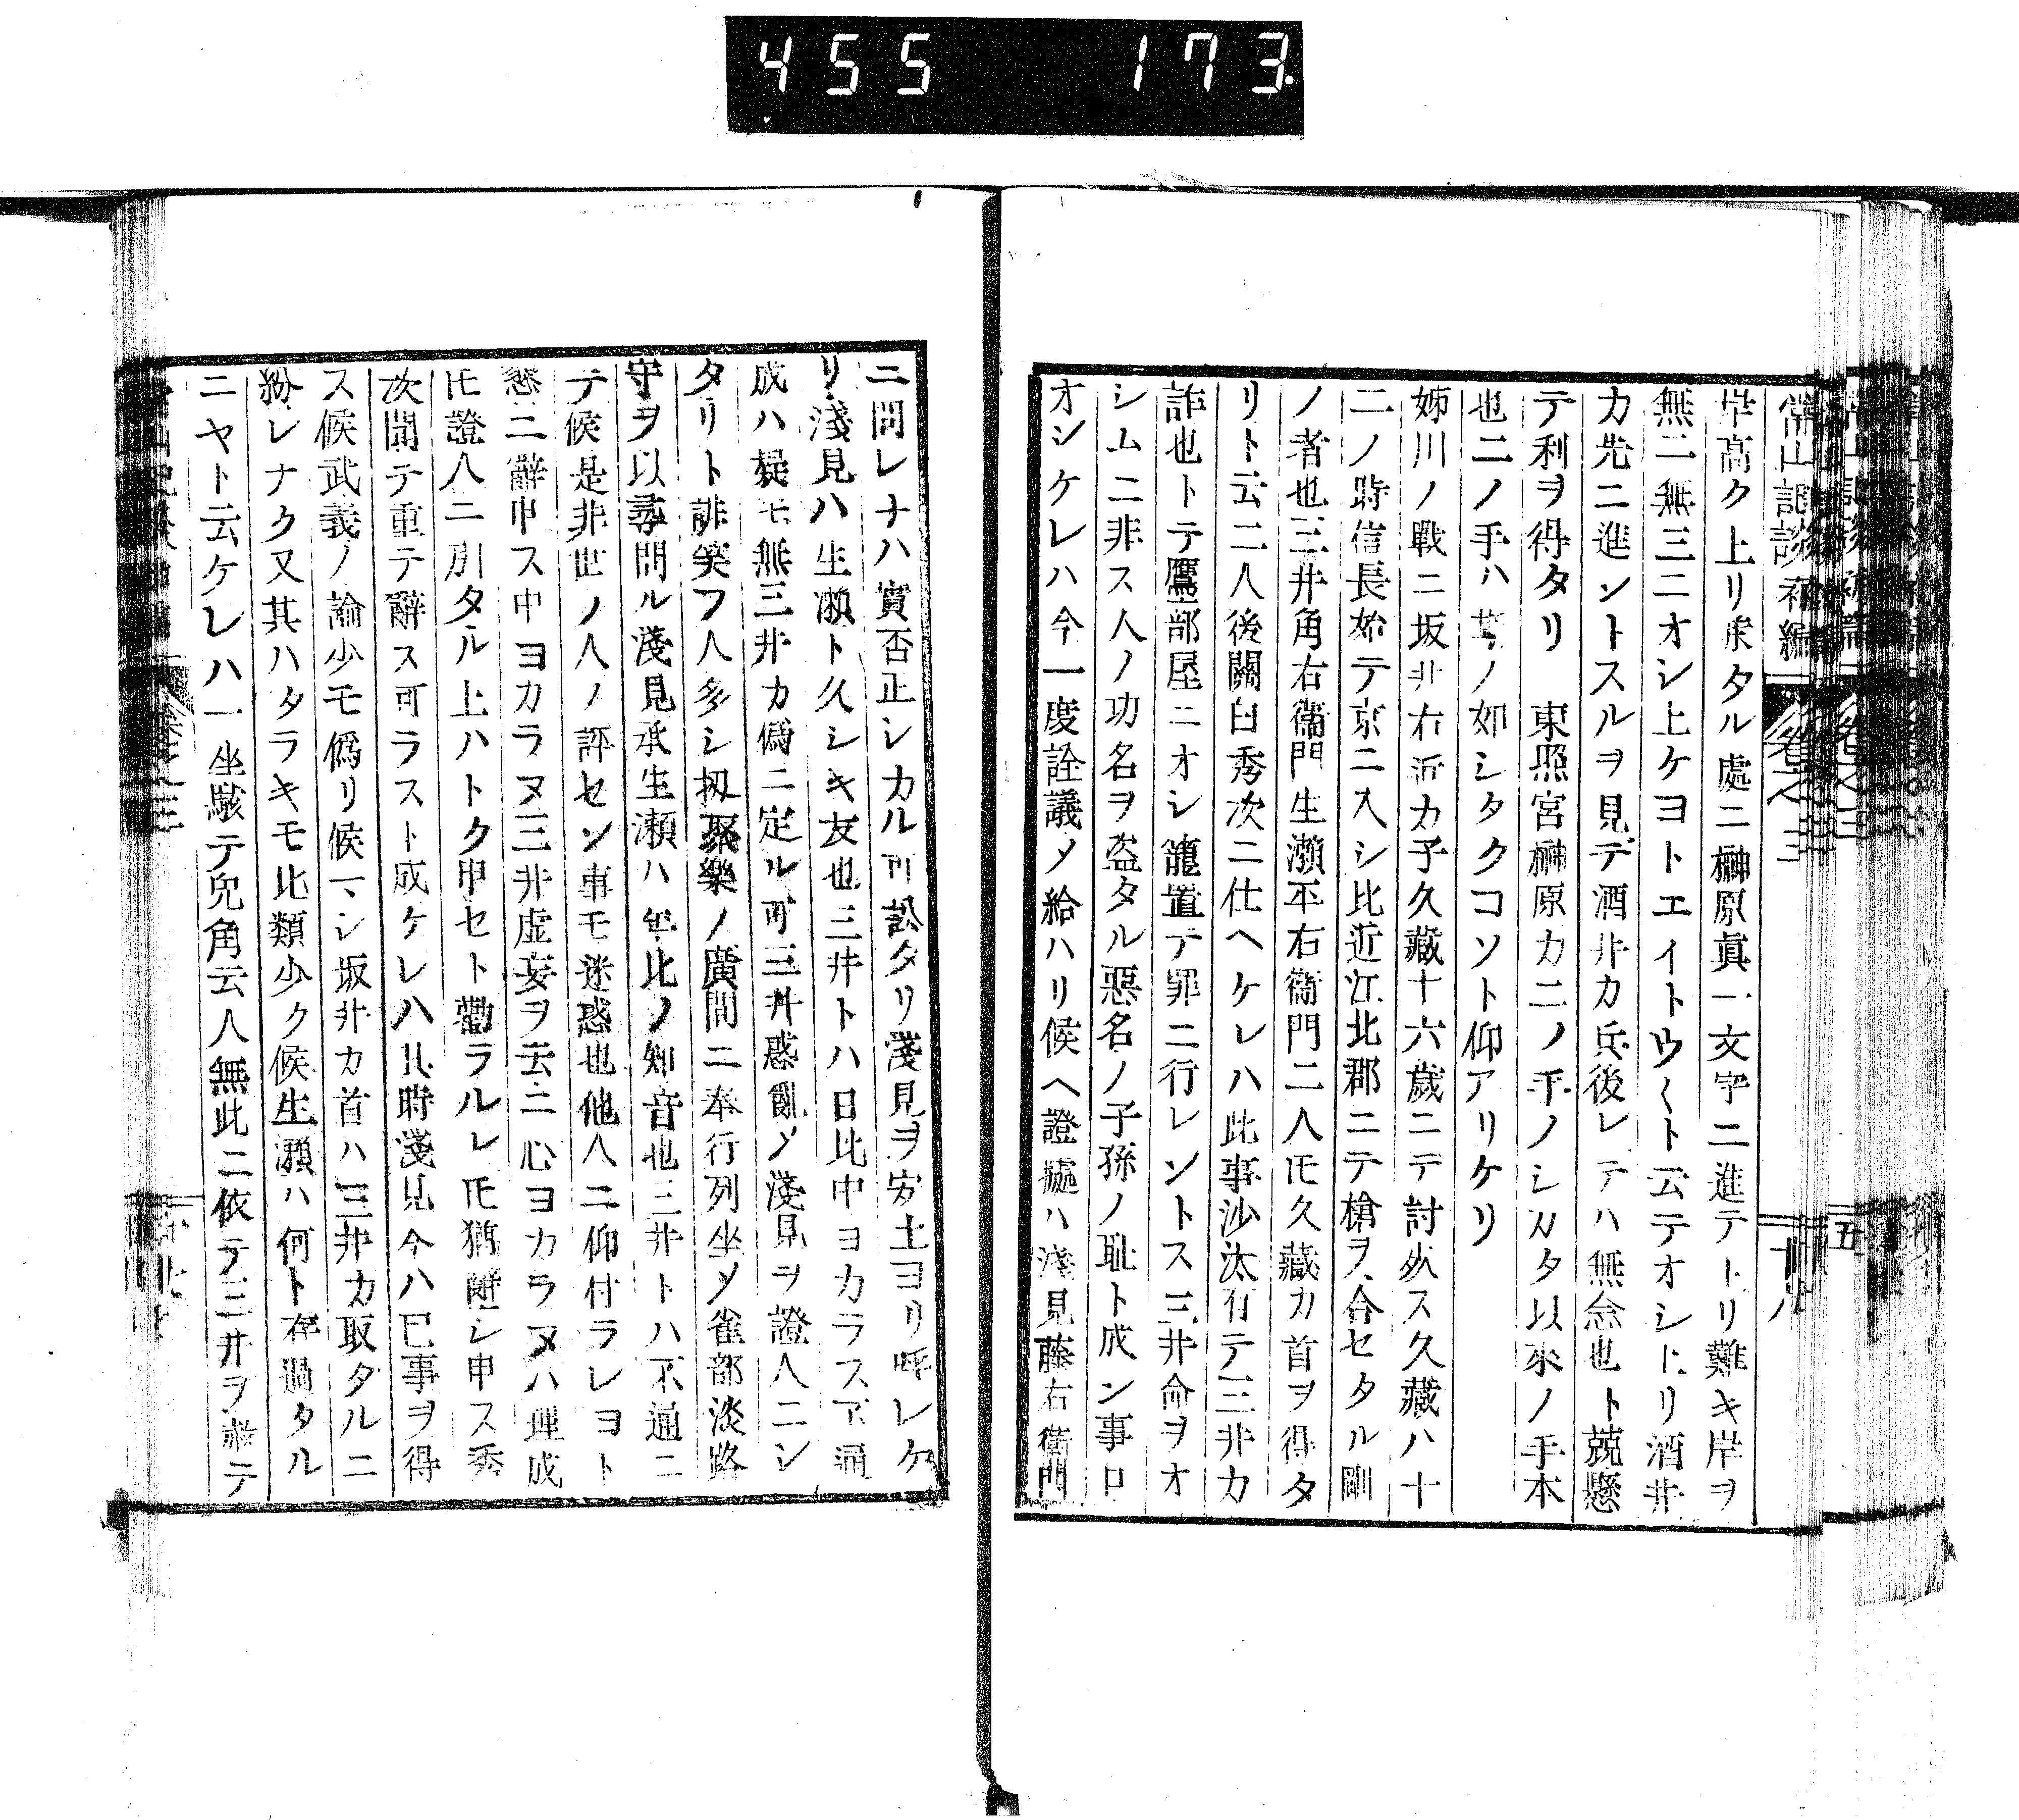 455 173
常山記談 補編 卷之三
岸高ク上リ來タル處ニ榊原眞一文字ニ進テトリ難キ岸ヲ
無二無三ニオシ上ケヨトエイトウ〱ト云テオシ上リ酒井
カ先ニ進ントスルヲ見テ酒井カ兵後レテハ無念也ト競懸
テ利ヲ得タリ 東照宮榊原カ二ノ手ノシカタ以來ノ手本
也二ノ手ハ其ノ如シタクコソト仰アリケリ
姊川ノ戰ニ坂井右近カ子久藏十六歲ニテ討死ス久藏ハ十
二ノ時信長始テ京ニ入シ比近江北郡ニテ槍ヲ合セタル剛
ノ者也三井角右衞門生瀨平右衞門二人𪜈久藏カ首ヲ得タ
リト云二人後關白秀次ニ仕ヘケレハ此事沙汰有テ三井カ
詐也トテ鷹部屋ニオシ籠置テ罪ニ行レントス三井命ヲオ
シムニ非ス人ノ功名ヲ盜タル惡名ノ子孫ノ恥ト成ン事口
オシケレハ今一度詮議メ給ハリ候ヘ證據ハ淺見藤右衞門
ニ問レナハ實否正シカル可訟タリ淺見ヲ安土ヨリ呼レケ
リ淺見ハ生瀨ト久シキ友也三井トハ日比中ヨカラス不通
成ハ疑モ無三井カ僞ニ定ル可三井惑亂メ淺見ヲ證人ニシ
タリト誹笑フ人多シ扨聚樂ノ廣間ニ奉行列坐メ雀部淡路
守ヲ以尋問ル淺見承生瀨ハ年比ノ知音也三井トハ不通ニ
テ候是非世ノ人ノ評セン事モ迷惑也他人ニ仰付ラレヨト
懇ニ辭申ス中ヨカラヌ三井虛妄ヲ云ニ心ヨカラヌハ理成
𪜈證人ニ引タル上ハトク申セト勸ラルレ𪜈猶辭シ申ス秀
次聞テ重テ辭ス可ラスト成ケレハ其時淺見今ハ已事ヲ得
ス候武義ノ論少モ僞リ候ヘシ坂井カ首ハ三井カ取タルニ
紛レナク又其ハタラキモ比類少ク候生瀨ハ何ト存過タル
ニヤト云ケレハ一坐駭テ兎角云人無此ニ依テ三井ヲ赦テ